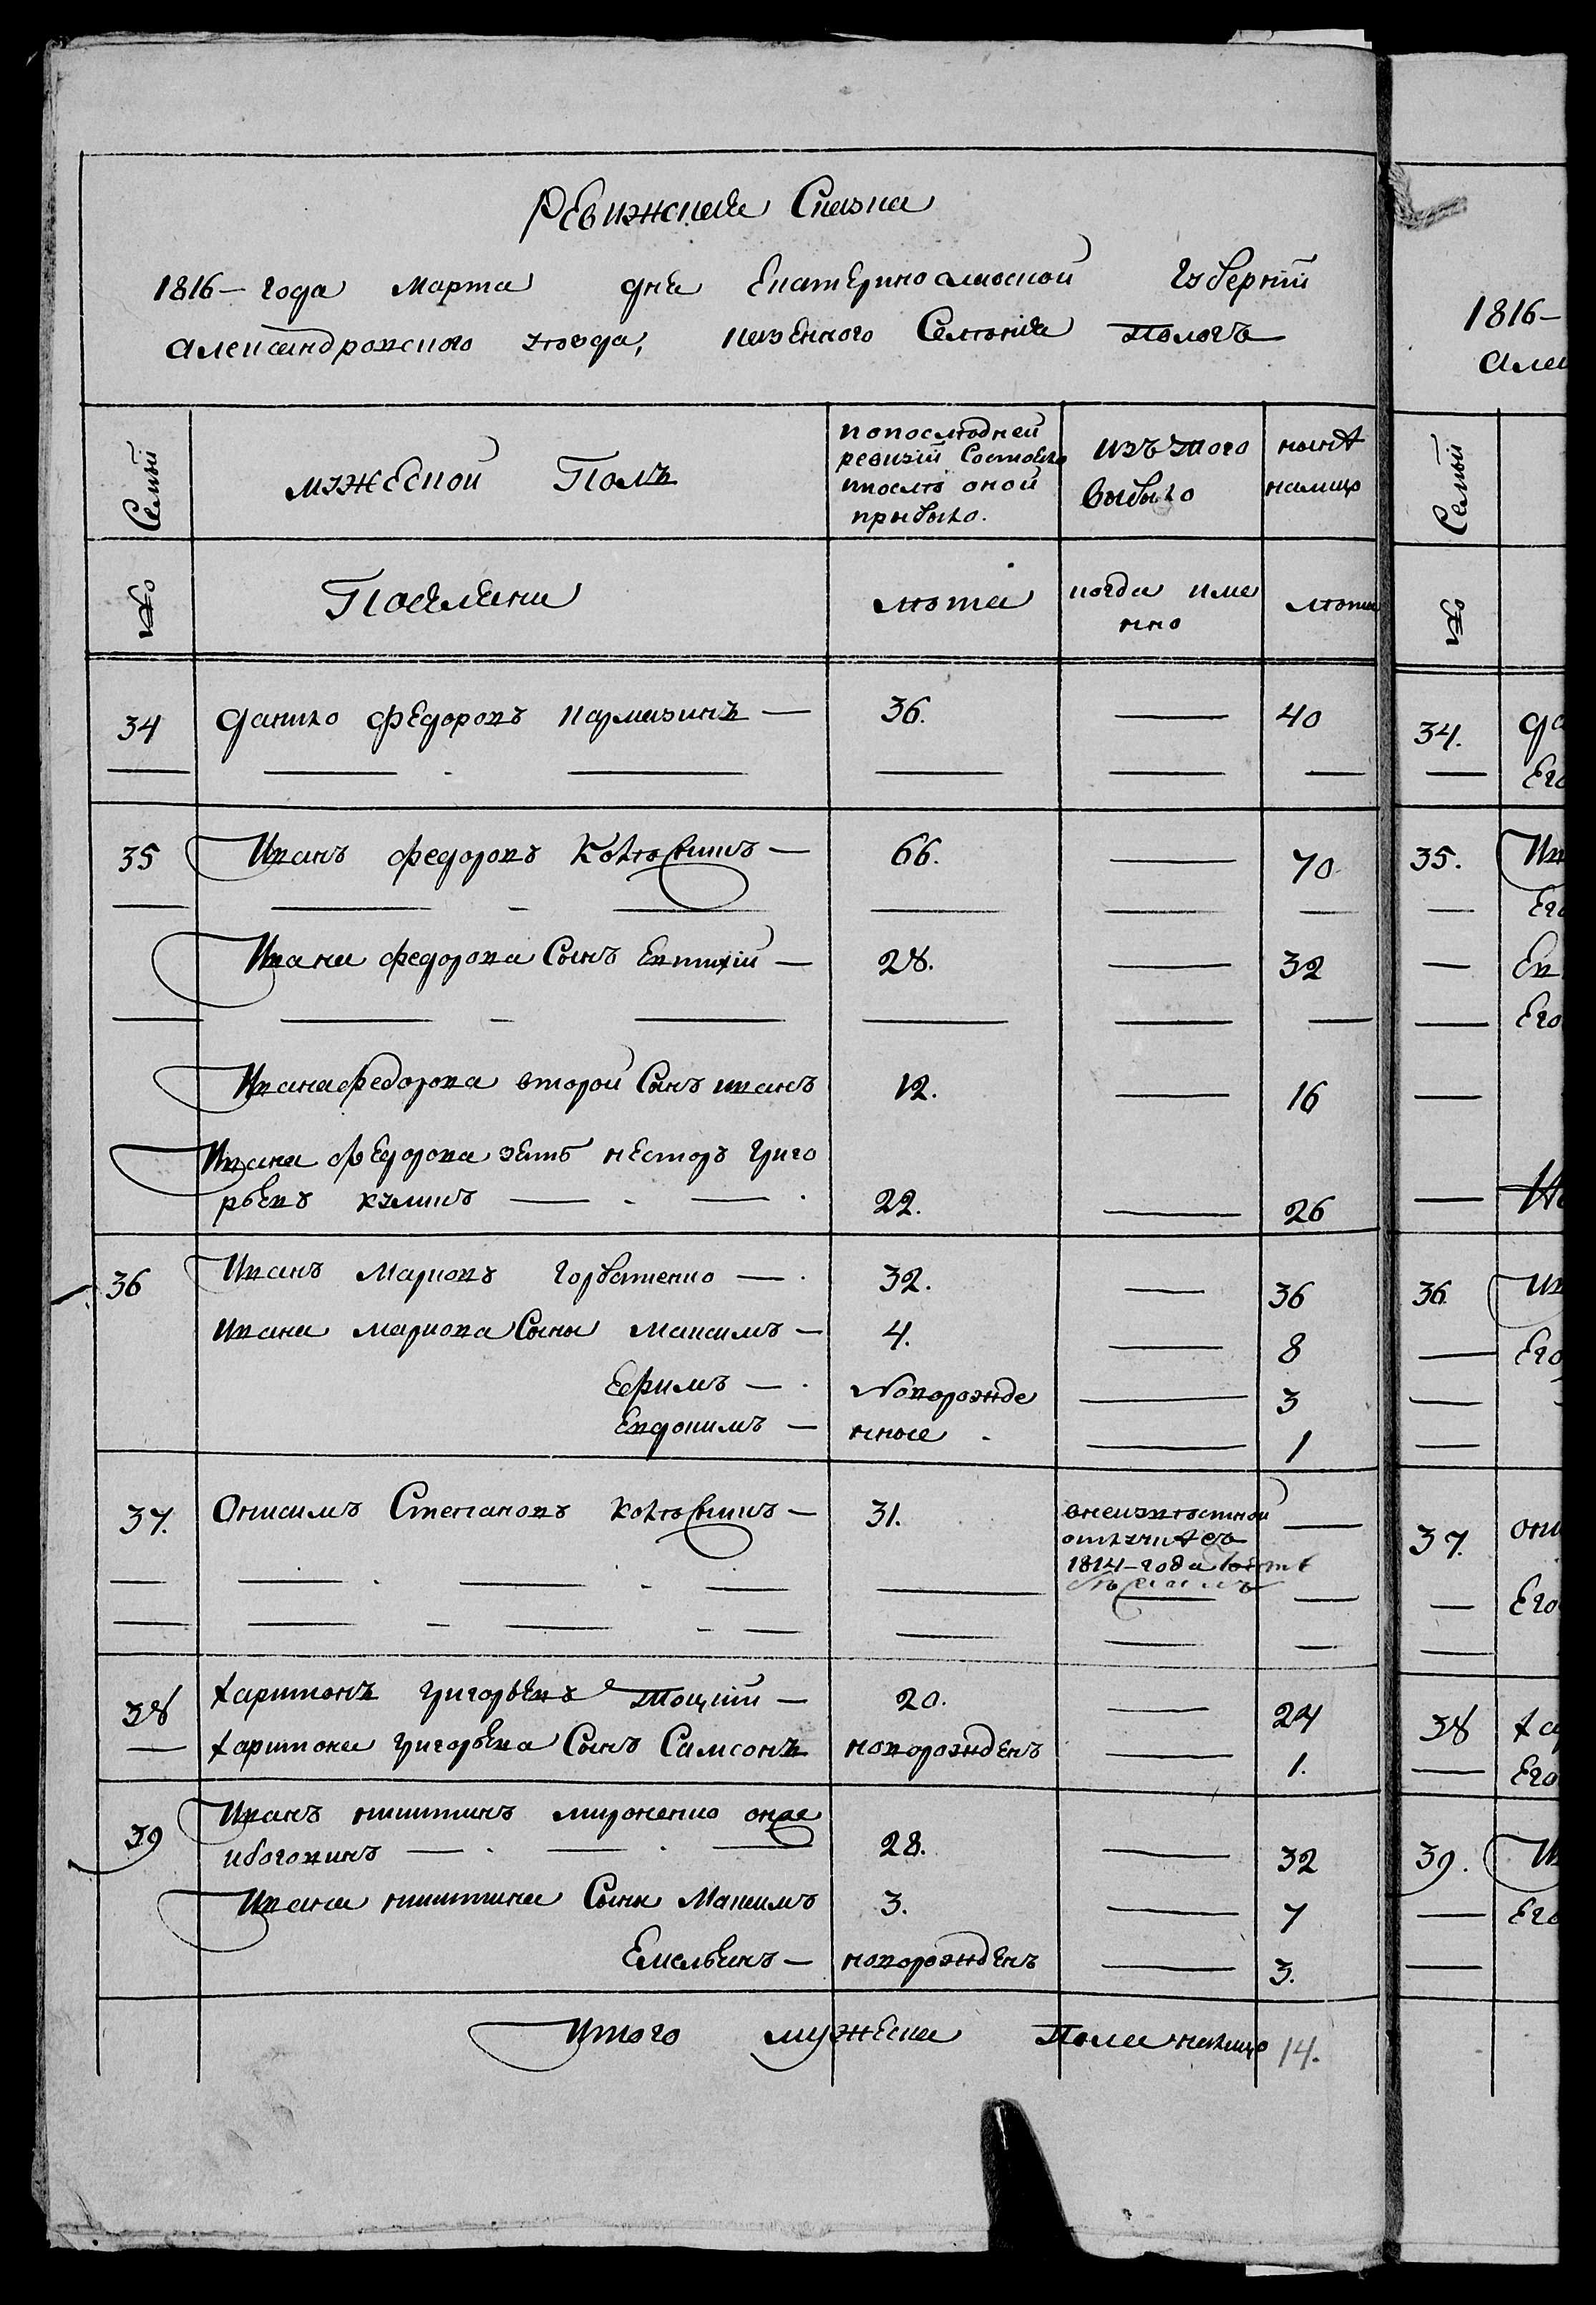 Ревижская Сказка
1816 – года марта дня Екатеринославской Губернiи
Александровского уѣзда, казенного Селѣнiя Пологъ
Семьи
мужеской Полъ
попослѣдней
ревизiи Состояло
ипослѣ оной
прибыло.
изъ того
выбыло
нынѣ
налицо
№
Поселяни
лѣта
когда име
нно
лѣта
34 Данило Федоровъ кармазинъ — 36. — 40
35 Иванъ Федоровъ — 66. — 70
Ивана Федорова Сынъ Евтихiй — 28. — 32
Ивана Федорова второй Сынъ иванъ 12. — 16
Ивана Федорова зять Несторъ Григо
рьевъ — 22. — 26
36 Иванъ Марковъ Горбатенко — 32. — 36
Ивана Маркова Сыны Максимъ — 4. — 8
Ефимъ — Новорожде — 3
Евдокимъ — нные — 1
37. Онисимъ Степановъ — 31. —
внеизвѣстной
отлучкѣ съ
1814 – года
38 Харитонъ Григорьевъ Тоцкiй — 20. — 24
— Харитона Григорьева Сынъ Самсонъ новорожденъ — 1.
39 Иванъ никитинъ мироненко онже
ибоговинъ — 28. — 32
Ивана никитина Сыны Максимъ 3. — 7
Емельянъ — новорожденъ — 3.
Итого мужеска Пола налицо 14.
1816 –
Алек
Семьи
№
34. Да
— Его
35. Ив
— Его
— Ев
— Его
36 Ив
— Его
37. Они
— Его
38 Ха
— Его
39. Ив
— Его